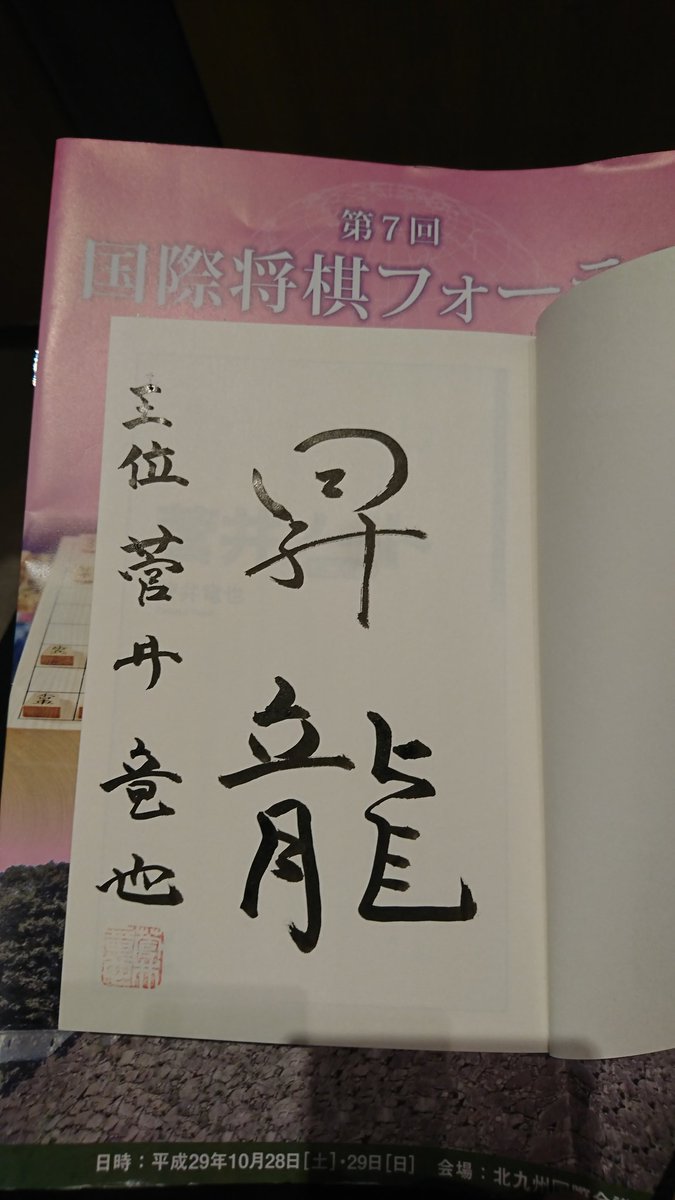 第7回
国際将棋フォーラ
昇龍
王位 菅井竜也
日時：平成29年10月28日[土]・29日[日]　会場：北九州